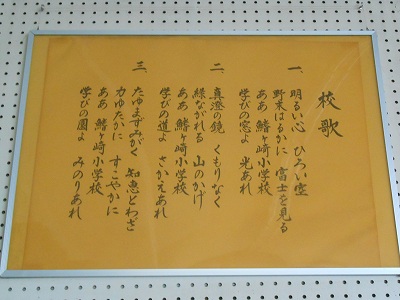 校歌
一、明るい心 ひろい空
野末はるかに 富士を見る
ああ 鰭ヶ崎小学校
学びの窓よ 光あれ
二、真澄の鏡 くもりなく
緑ながれる 山のかげ
ああ 鰭ヶ崎小学校
学びの道よ さかえあれ
三、たゆまずみがく 知恵とわざ
力ゆたかに すこやかに
ああ 鰭ヶ崎小学校
学びの園よ みのりあれ